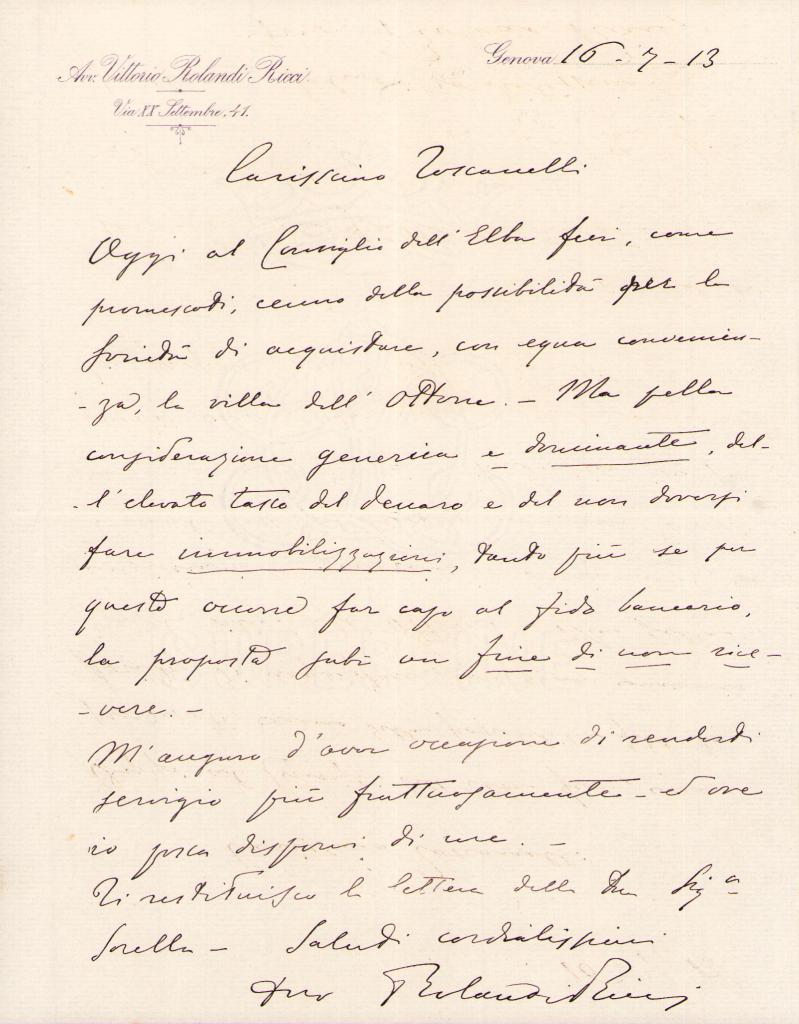 Avv. Vittorio Rolandi Ricci
Via XX Settembre, 41.
Genova 16-7-13
Carissimo Toscanelli
Oggi al Consiglio dell'Elba feci, come
promescoti, cenno della possibilità per la
Società di acquistare, con equa convenien-
-za, la villa dell'Ottone. - Ma pella
considerazione generica e dominante, del-
-l'elevato tasso del denaro e del non doversi
fare immobilizzazioni, tanto più se per
questo occorre far capo al fido bancario,
la proposta subì un fine di non rice-
-vere. -
M'auguro d'aver occasione di renderti
servigio più fruttuosamente - ed ove
io possa disponi di me. -
Ti restituisco la lettera della tua Sig.a
Sorella - Saluti cordialissimi
tuo Rolandi Ricci